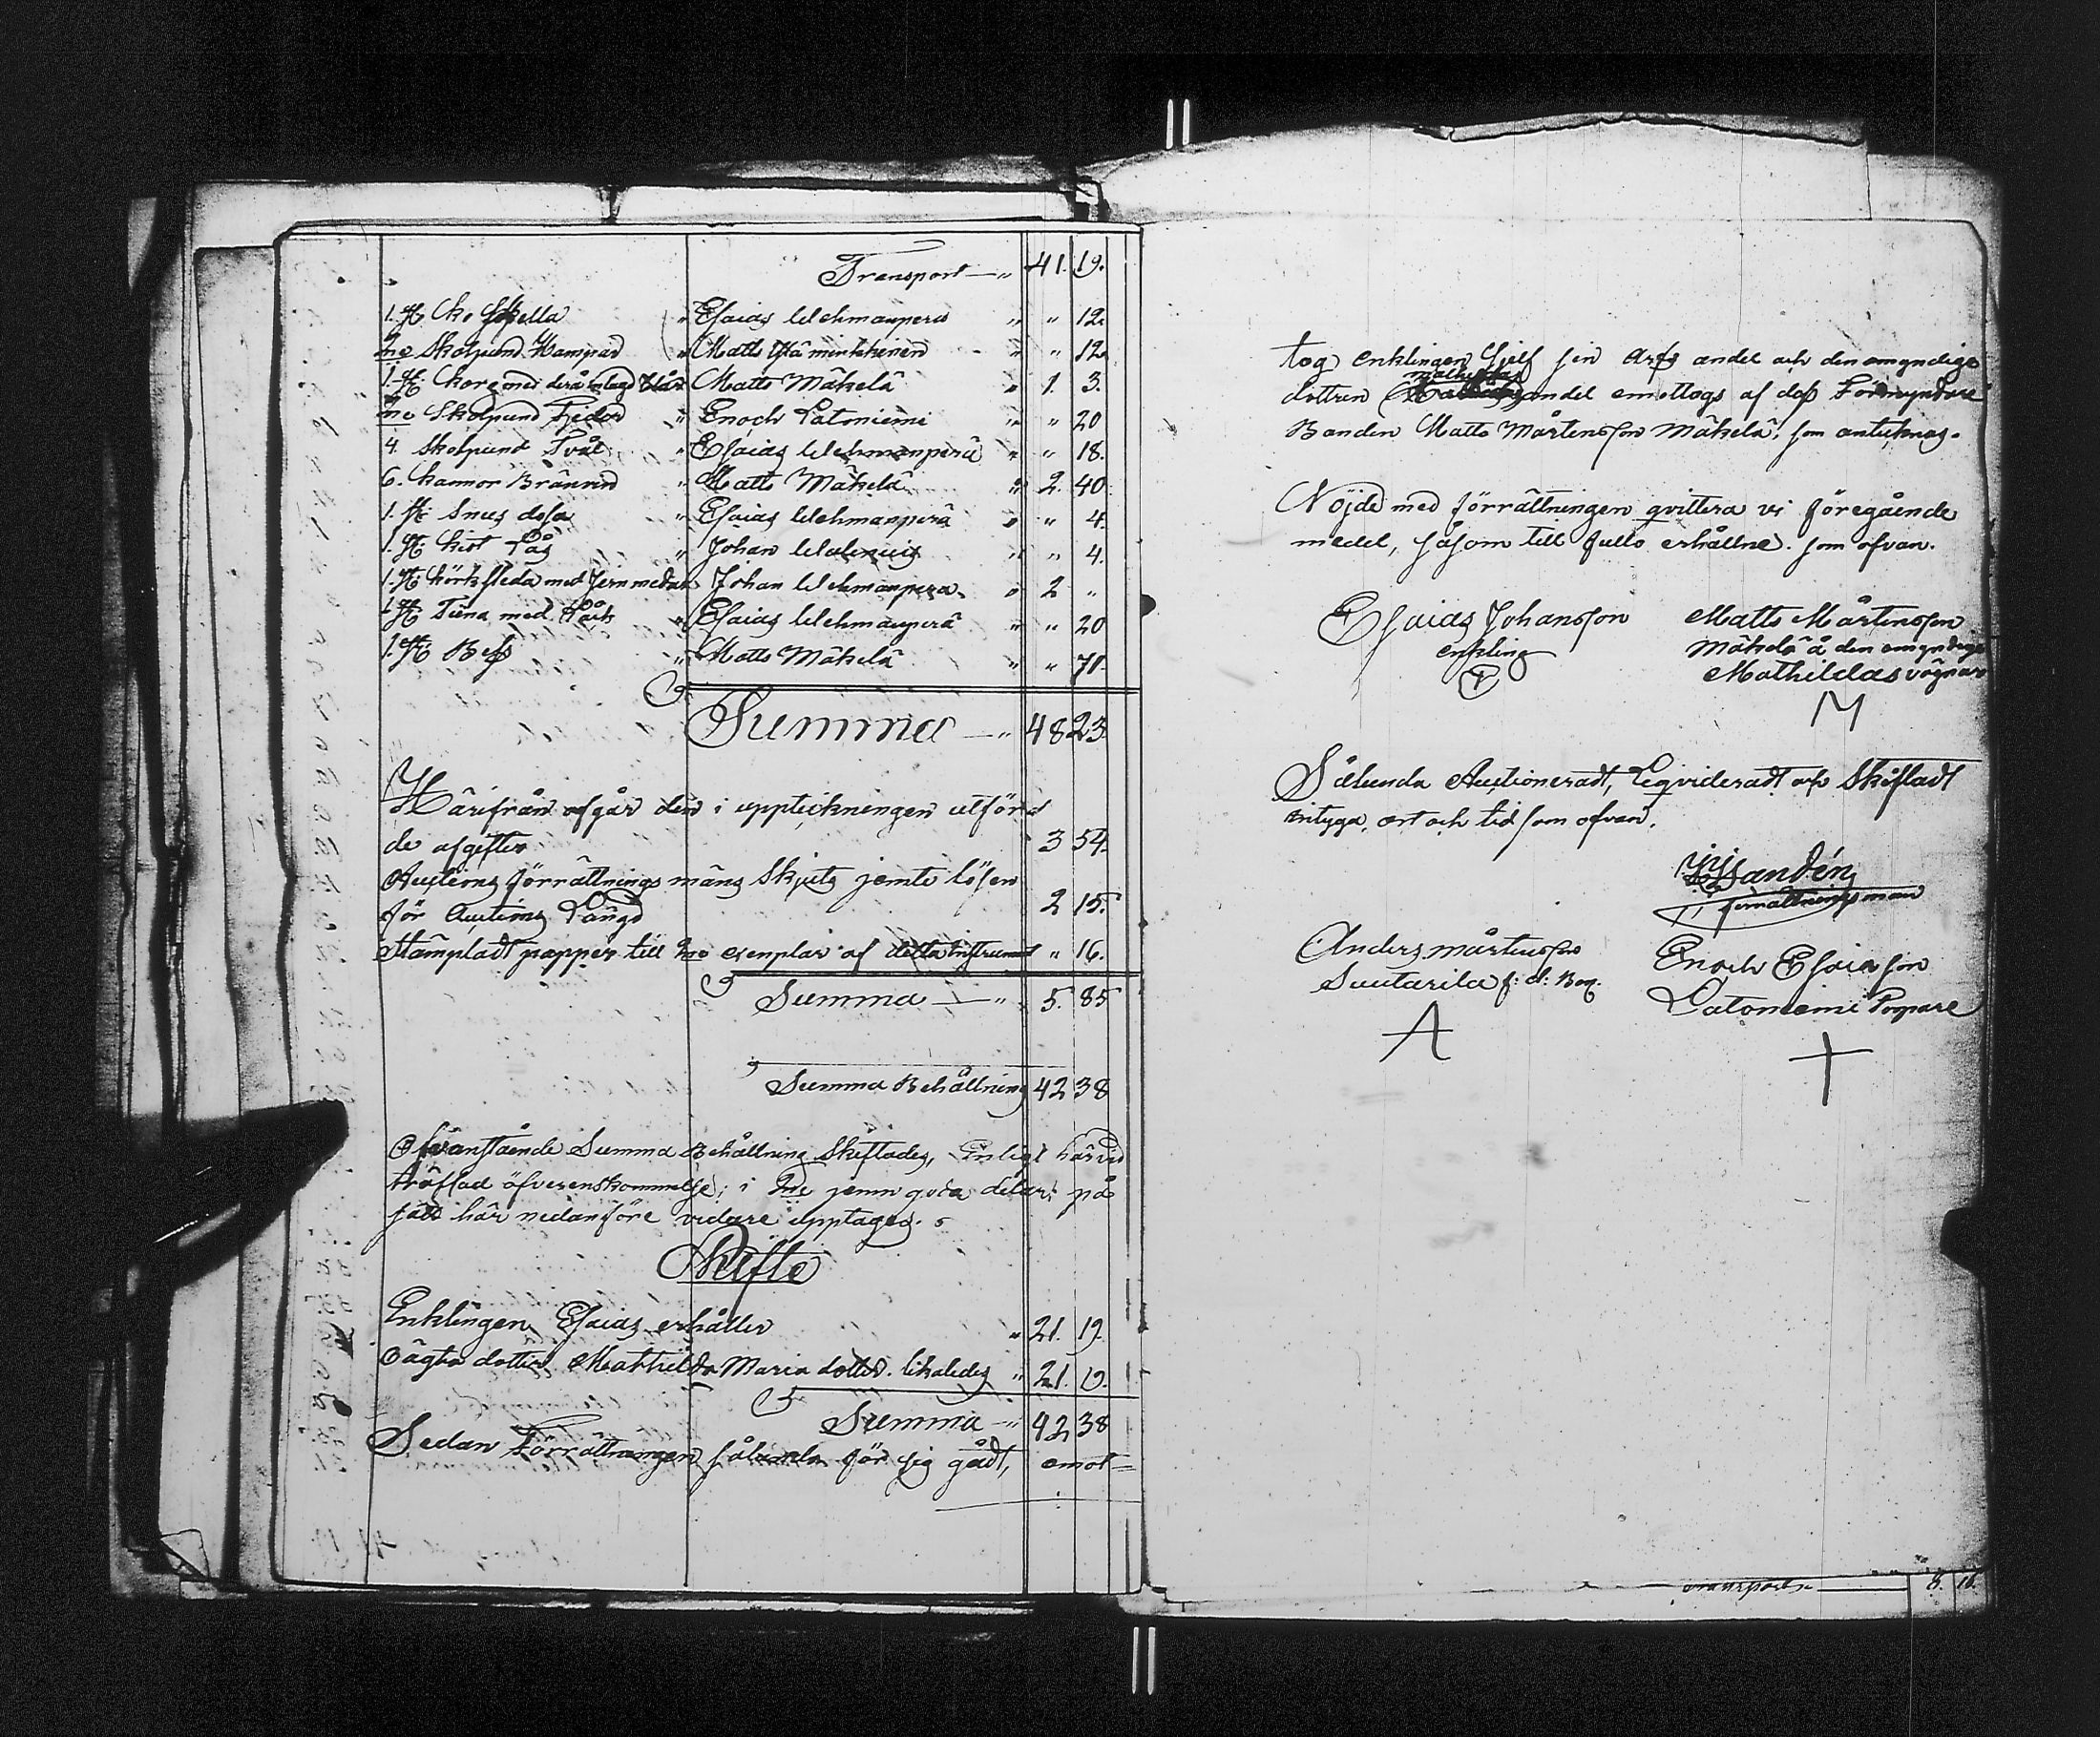 Transport — " 41. 19.
1. st. Ko skella " Esaias Wehmanperä " " 12.
2ne Skolpund Hampad " Matts Ylä minkkinen " " 12.
1. st. Korg med derå inlagd Blår Matts Mäkelä " 1. 3.
2ne Skolpund Fjedor " Enoch Latoniemi " " 20
4 skolpund Tvål " Esaias Wehmanperä " " 18.
6. kannor Bränvin " Matts Mäkelä " 2. 40.
1. st. Snus dosa " Esaias Wehmanperä " " 4.
1. st. kist Lås " Johan " " 4.
1. st. Körksläda med Jern medar Johan Wehmanpera " 2 "
1 st. Tiena med Lock " Esaias Wehmanperä " " 20
1. st. " Matts Mäkelä " " 71.
Summa — " 48 23.
Härifrån afgår den i uppteckningen utförd
de afgifter 3 54.
Auctions förrättnings mans Skjuts jemte lösen
för Auctions Längd 2 15.
Stämpladt papper till 2ne exemplar af detta Instrument " 16.
Summa — " 5. 85
Summa Behållning 42 38
Ofvanstående Summa Behållning skiftades, Enligt härvid
träffad öfverenskommelse; i 2ne jemn goda delar; på
sätt här nedanföre vidare upptages.
Skifte
Enklingen Esaias erhåller " 21. 19.
Oägta dotter Mathilda Maria dotter. likaledes " 21. 19.
Summa — " 42 38
Sedan Förrättningen sålunda för sig gådt, emot=
tog enklingen sjelf sin Arfs andel och den omyndige
Mathildas
dottren andel emottogs af dess Förmyndare
Bonden Matts Mårtensson Mäkelä, som antecknas.
Nöjde med förrättningen qvittera vi föregående
medel, såsom till fullo erhållne. som ofvan.
Esaias Johansson Matts Mårtensson
enkling Mäkelä å den omyndige
Mathildas vägnar
M
Sålunda Auctioneradt, Liqvideradt och Skiftadt
intyga, ort och tid som ofvan.
Sandén
förrättningsman
Anders Mårtensson Enoch Esaiasson
Suutarila f: d: Bon. Latoniemi Torpare
A +
transport 8. 16.